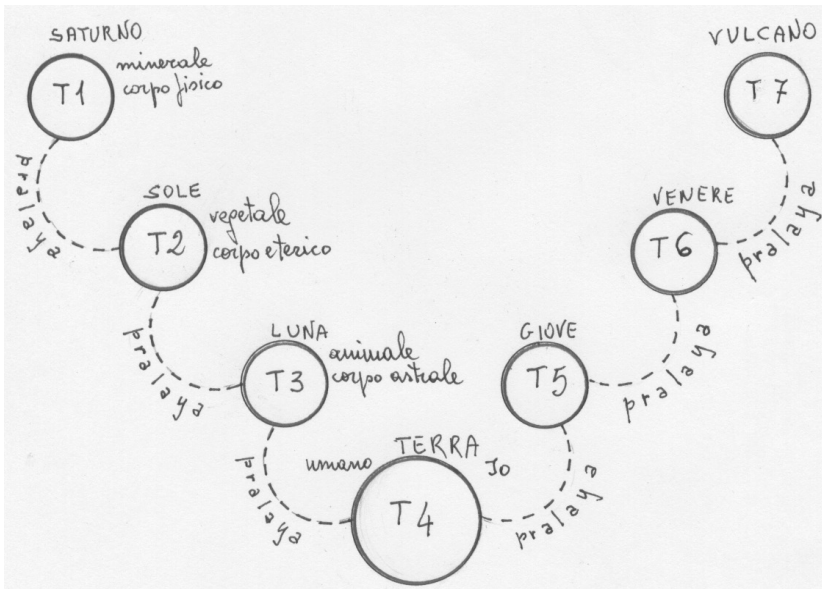 SATURNO
T1
minerale
corpo fisico
pralaya
SOLE
T2
vegetale
corpo eterico
pralaya
LUNA
T3
animale
corpo astrale
pralaya
TERRA
umano
Io
T4
pralaya
GIOVE
T5
pralaya
VENERE
T6
pralaya
VULCANO
T7